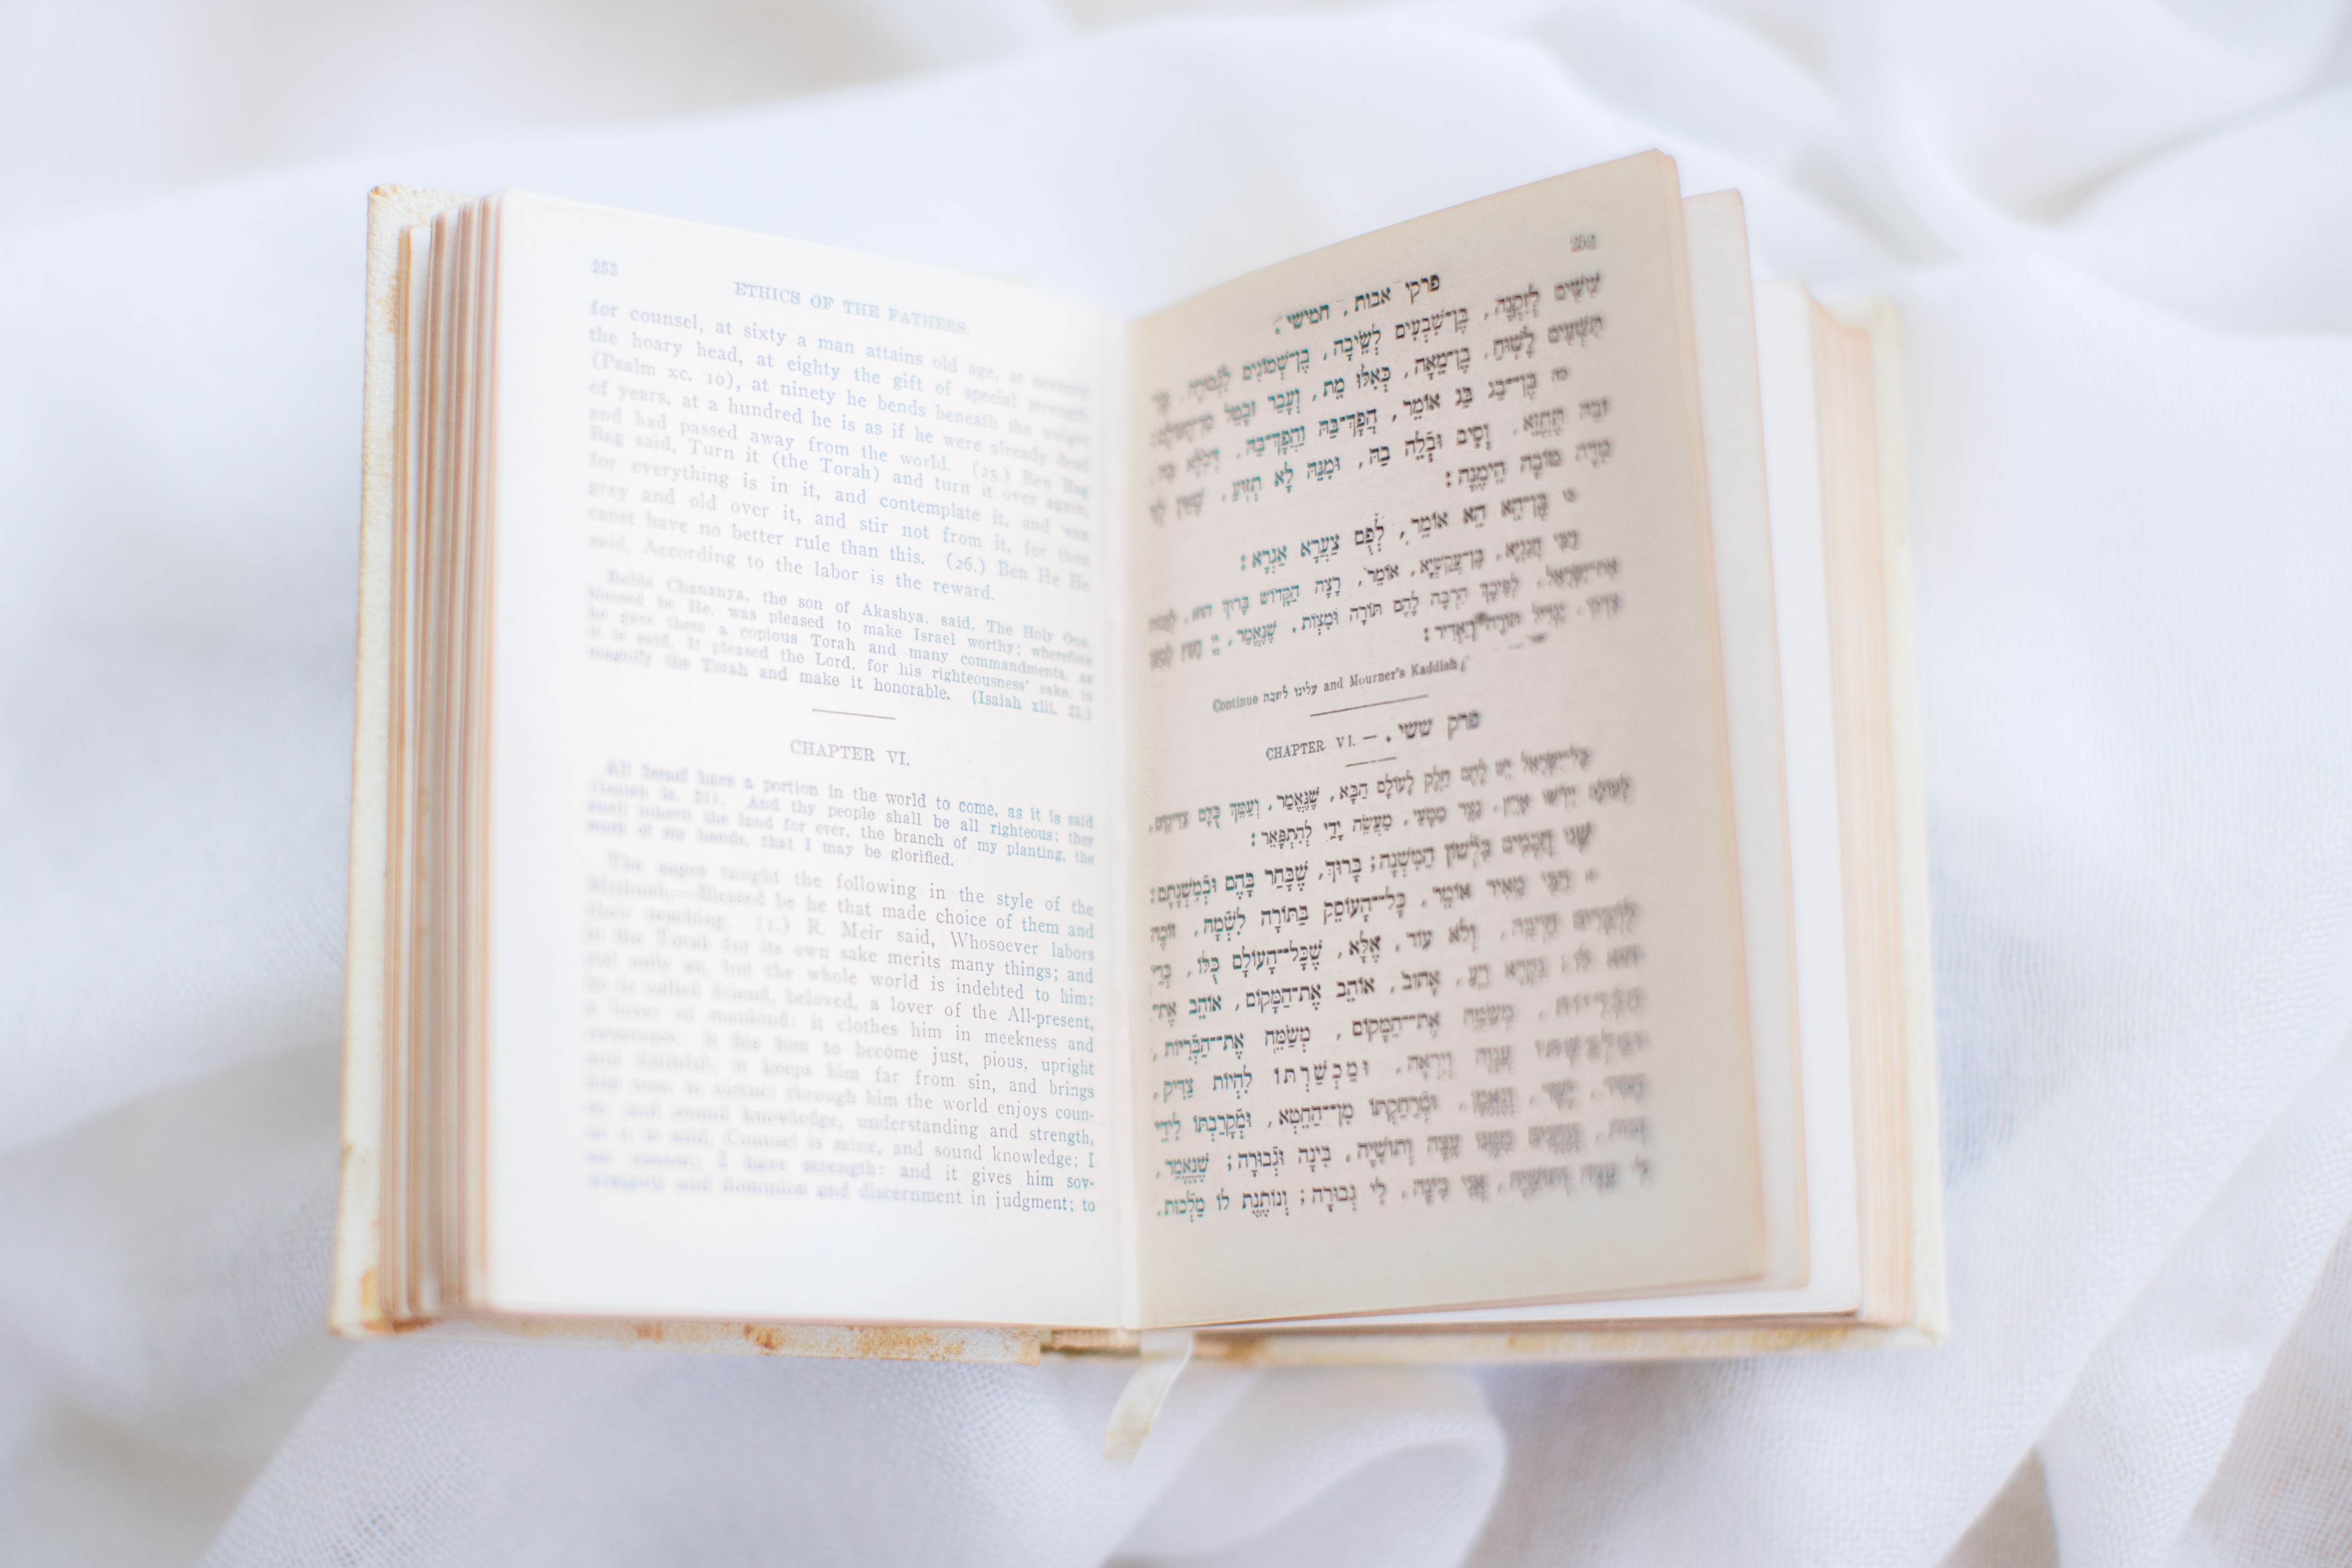 252
ETHICS OF THE FATHERS.
for counsel, at sixty a man attains old age, at seventy
the hoary head, at eighty the gift of special strength
(Psalm xc. 10), at ninety he bends beneath the weight
of years, at a hundred he is as if he were already dead
and had passed away from the world. (25.) Ben Bag
Bag said, Turn it (the Torah) and turn it over again,
for everything is in it, and contemplate it, and wax
grey and old over it, and stir not from it, for thou
canst have no better rule than this. (26.) Ben He He
said, According to the labor is the reward.
Rabbi Chananya, the son of Akashya, said, The Holy One,
blessed be He, was pleased to make Israel worthy; wherefore
he gave them a copious Torah and many commandments, as
it is said, It pleased the Lord, for his righteousness' sake, to
magnify the Torah and make it honorable. (Isaiah xlii. 21.)
CHAPTER VI.
All Israel have a portion in the world to come, as it is said
And thy people shall be all righteous; they
shall inherit the land for ever, the branch of my planting, the
work of my hands, that I may be glorified.
The sages taught the following in the style of the
Mishnah,—Blessed be he that made choice of them and
their teaching. (1.) R. Meir said, Whosoever labors
in the Torah for its own sake merits many things; and
not only so, but the whole world is indebted to him:
he is called friend, beloved, a lover of the All-present,
a lover of mankind: it clothes him in meekness and
it fits him to become just, pious, upright
and faithful; it keeps him far from sin, and brings
him near to virtue: through him the world enjoys coun-
and sound knowledge, understanding and strength,
as it is said, Counsel is mine, and sound knowledge; I
I have strength: and it gives him sov-
and dominion and discernment in judgment; to
פרקי אבות, חמישי.
שִׁשִּׁים לְזִקְנָה, בֶּן־שִׁבְעִים לְשֵׂיבָה, בֶּן־שְׁמוֹנִים לִגְבוּרָה, בֶּן
תִּשְׁעִים לָשׁוּחַ, בֶּן־מֵאָה, כְּאִלּוּ מֵת, וְעָבַר וּבָטֵל מִן־הָעוֹלָם:
בֶּן־בַּג בַּג אוֹמֵר, הֲפָךְ־בַּהּ וַהֲפָךְ־בַּהּ, דְּכֹלָּא בַהּ,
וּבַהּ תֶּחֱזֵא, וְסִיב וּבְלֵה בַהּ, וּמִנַּהּ לָא תְזוּעַ, שֶׁאֵין לְךָ
מִדָּה טוֹבָה הֵימֶנָּה:
בֶּן־הֵא הֵא אוֹמֵר, לְפֻם צַעֲרָא אַגְרָא:
רַבִּי חֲנַנְיָא, בֶּן־עֲקַשְׁיָא, אוֹמֵר, רָצָה הַקָּדוֹשׁ בָּרוּךְ הוּא, לְזַכּוֹת
אֶת־יִשְׂרָאֵל, לְפִיכָךְ הִרְבָּה לָהֶם תּוֹרָה וּמִצְוֹת. שֶׁנֶּאֱמַר, יְיָ חָפֵץ לְמַעַן
צִדְקוֹ, יַגְדִּיל תּוֹרָה וְיַאְדִּיר:
Continue עלינו לשבח and Mourner's Kaddish.
CHAPTER VI. — פרק ששי.
כָּל־יִשְׂרָאֵל יֵשׁ לָהֶם חֵלֶק לָעוֹלָם הַבָּא, שֶׁנֶּאֱמַר, וְעַמֵּךְ כֻּלָּם צַדִּיקִים,
לְעוֹלָם יִירְשׁוּ אָרֶץ, נֵצֶר מַטָּעַי, מַעֲשֵׂה יָדַי לְהִתְפָּאֵר:
שָׁנוּ חֲכָמִים בִּלְשׁוֹן הַמִּשְׁנָה; בָּרוּךְ, שֶׁבָּחַר בָּהֶם וּבְמִשְׁנָתָם:
רַבִּי מֵאִיר אוֹמֵר, כָּל־הָעוֹסֵק בַּתּוֹרָה לִשְׁמָהּ, זוֹכֶה
לִדְבָרִים הַרְבֵּה, וְלֹא עוֹד, אֶלָּא, שֶׁכָּל־הָעוֹלָם כֻּלּוֹ, כְּדַי
הוּא לוֹ; נִקְרָא רֵעַ, אָהוּב, אוֹהֵב אֶת־הַמָּקוֹם, אוֹהֵב אֶת־
הַבְּרִיּוֹת, מְשַׂמֵּחַ אֶת־הַמָּקוֹם, מְשַׂמֵּחַ אֶת־הַבְּרִיּוֹת,
וּמַלְבַּשְׁתּוֹ עֲנָוָה וְיִרְאָה, וּמַכְשַׁרְתּוֹ לִהְיוֹת צַדִּיק,
חָסִיד, יָשָׁר, וְנֶאֱמָן, וּמְרַחַקְתּוֹ מִן־הַחֵטְא, וּמְקָרַבְתּוֹ לִידֵי
מִמֶּנּוּ עֵצָה וְתוּשִׁיָּה, בִּינָה וּגְבוּרָה; שֶׁנֶּאֱמַר,
לִי עֵצָה וְתוּשִׁיָּה, אֲנִי בִינָה, לִי גְבוּרָה; וְנוֹתֶנֶת לוֹ מַלְכוּת,